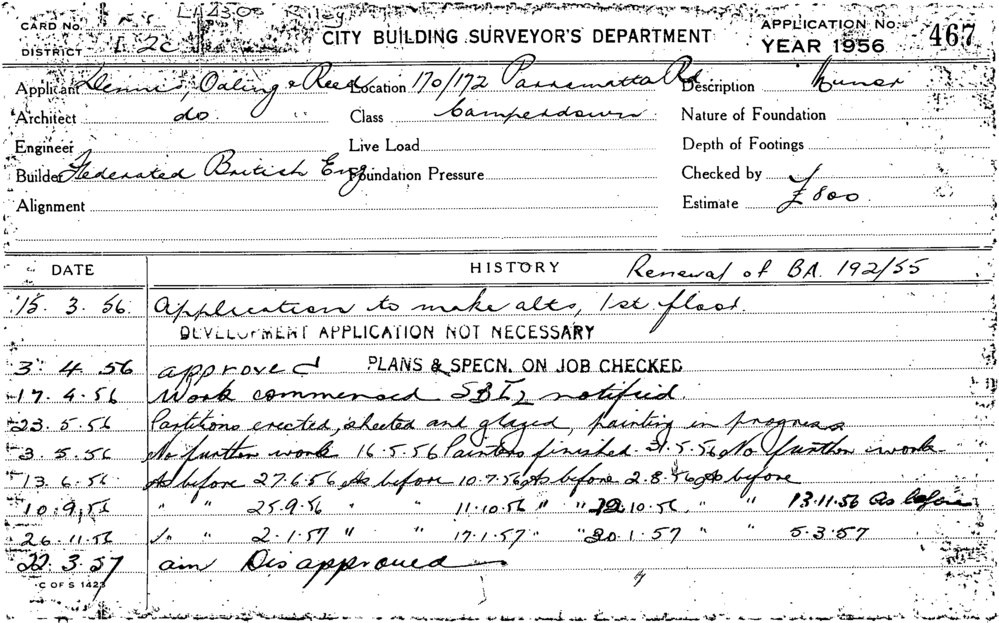 CARD No. CITY BUILDING SURVEYOR'S DEPARTMENT APPLICATION No. 467
DISTRICT YEAR 1956
Applicant Dennis, & Reed Location 170/172 Parramatta Rd Description
Architect do. " Class Camperdown Nature of Foundation
Engineer Live Load Depth of Footings
Builder Federated British Eng Foundation Pressure Checked by
Alignment Estimate £800
DATE HISTORY Renewal of BA. 192/55
15. 3. 56. Application to make alts, 1st floor.
DEVELOPMENT APPLICATION NOT NECESSARY
3. 4. 56 approved PLANS & SPECN. ON JOB CHECKED
17. 4. 56 Work commenced notified.
23. 5. 56 Partitions erected, sheeted and glazed, painting in progress
3. 5. 56 No further work 16.5.56 Painters finished. 5.56 No further work.
13. 6. 56 As before 27.6.56 As before 10.7.56 As before 2.8.56 As before
10. 9. 56 " " 25.9.56 " " 11.10.56 " " 10.56 " " 13.11.56 As before
26. 11. 56 " " 2.1.57 " " 17.1.57 " " 1.57 " " 5.3.57
22. 3. 57 Disapproved
C OF S 1423